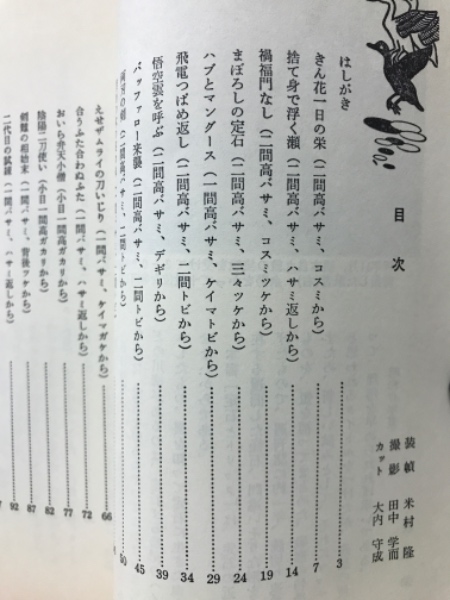 目次
装幀 米村 隆
撮影 田中 学而
カット 大内 守成
はしがき 3
きん花一日の栄(二間高バサミ、コスミから) 7
捨て身で浮く瀬(二間高バサミ、ハサミ返しから) 14
禍福門なし(二間高バサミ、コスミツケから) 19
まぼろしの定石(二間高バサミ、三々ツケから) 24
ハブとマングース(一間高バサミ、ケイマトビから) 29
飛電つばめ返し(二間高バサミ、二間トビから) 34
悟空雲を呼ぶ(二間高バサミ、デギリから) 39
バッファロー来襲(二間高バサミ、二間トビから) 45
の剣(二間高バサミ、二間トビから) 50
えせザムライの刀いじり(一間バサミ、ケイマガケから) 66
合うふた合わぬふた(一間バサミ、ハサミ返しから) 72
おいら弁天小僧(小目一間高ガカリから) 77
陰陽二刀使い(小目一間高ガカリから) 82
剣難の相始末(一間バサミ、背後ツケから) 87
二代目の試練(一間バサミ、ハサミ返しから) 92